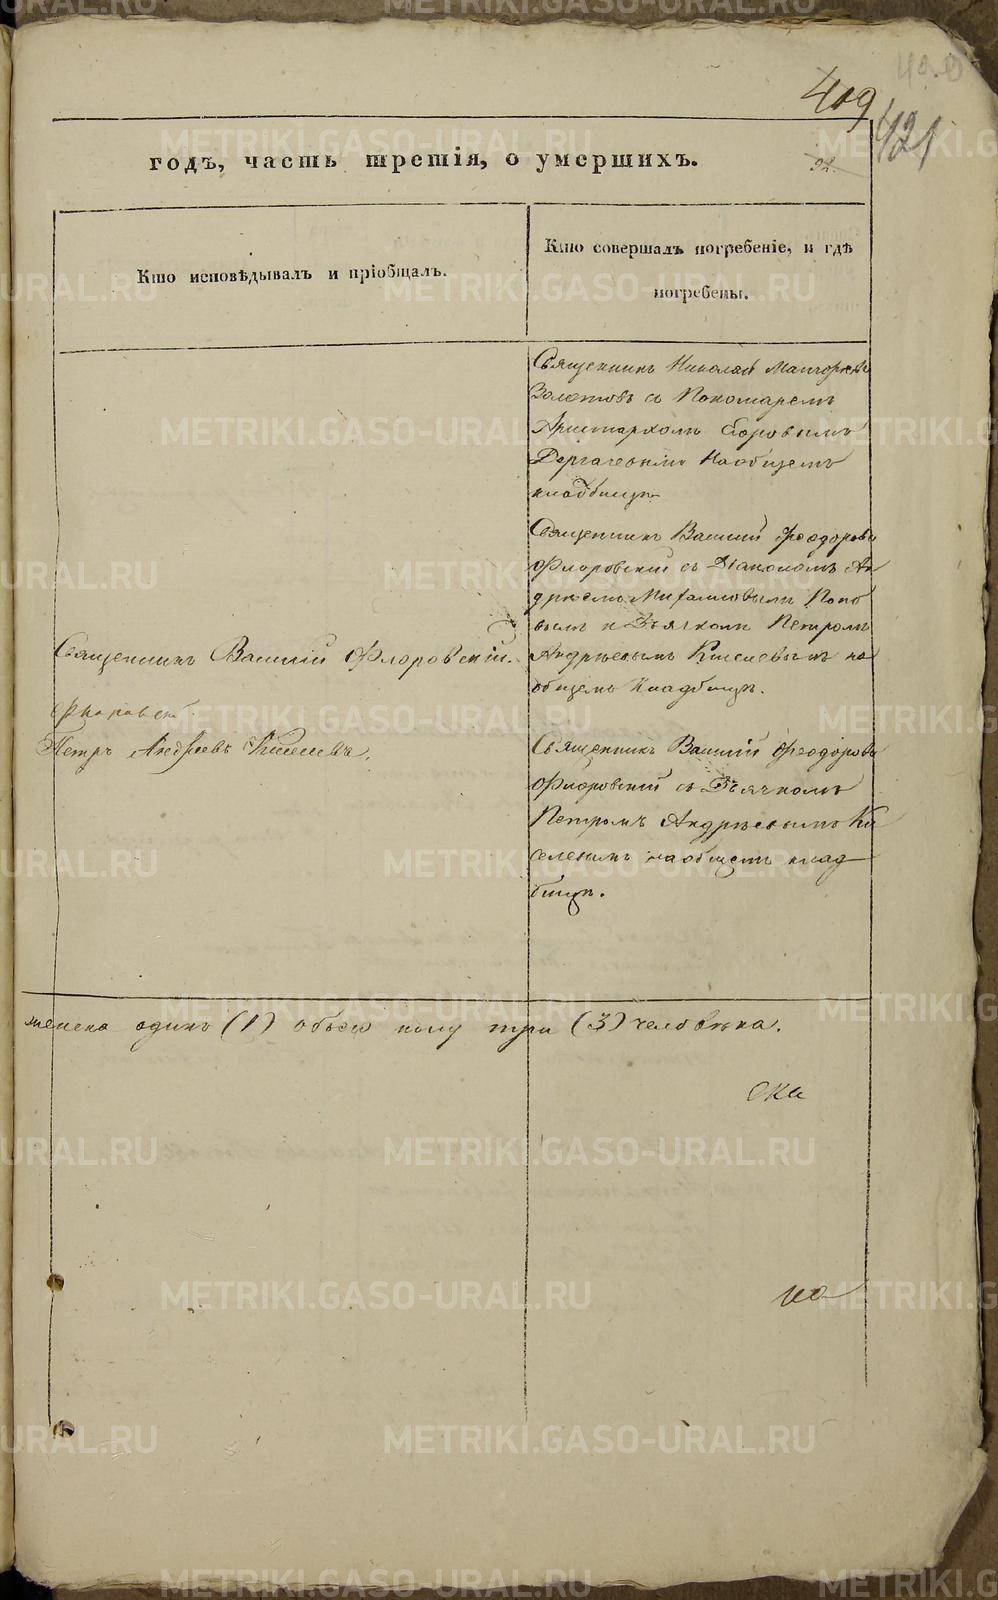 409
421
92.
годъ, часть третія, о умершихъ.
Кто исповѣдывалъ и пріобщалъ.
Кто совершалъ погребеніе, и гдѣ
погребены.
Священникъ Николай
Золотовъ съ Пономаремъ
Аристархомъ
Дергачевымъ на общемъ
кладбищѣ
Священникъ Василій Феодоровъ
Флоровскій съ Діакономъ Ан
дреемъ Михайловымъ Попо
вымъ и Дьячкомъ Петромъ
Андрѣевымъ Киселевымъ на
общемъ Кладбищѣ.
Священникъ Василій Флоровскій.
Петръ Андреевъ Киселевъ.
Священникъ Василій Феодоровъ
Флоровскій съ Дьячкомъ
Петромъ Андрѣевымъ Ки
селевымъ на общемъ клад
бищѣ.
женска одинъ (1) обоего полу три (3) человѣка.
METRIKI.GASO-URAL.RU